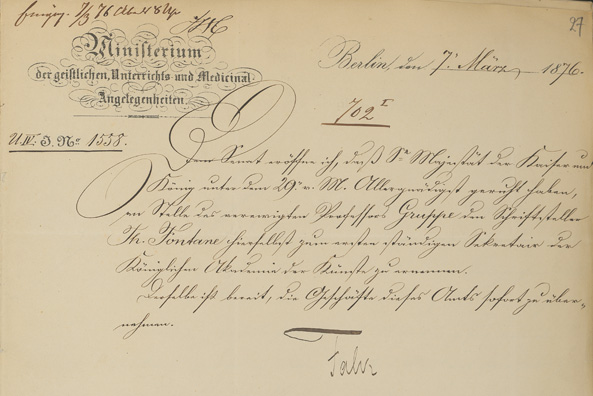 eingeg. 7/3 76 Abends 8 Uhr
27
Ministerium
der geistlichen, Unterrichts und Medicinal-
Angelegenheiten.
Berlin, den 7t März 1876.
702 I
U. IV. J. No 1558.
Dem Senat eröffne ich, daß Se Majestät der Kaiser und
König unter dem 29. v. M. Allergnädigst geruht haben,
an Stelle des verewigten Professors Gruppe den Schriftsteller
Th. Fontane hierselbst zum ersten ständigen Sekretair der
Königlichen Akademie der Künste zu ernennen.
Derselbe ist bereit, die Geschäfte dieses Amts sofort zu über-
nehmen.
Falk